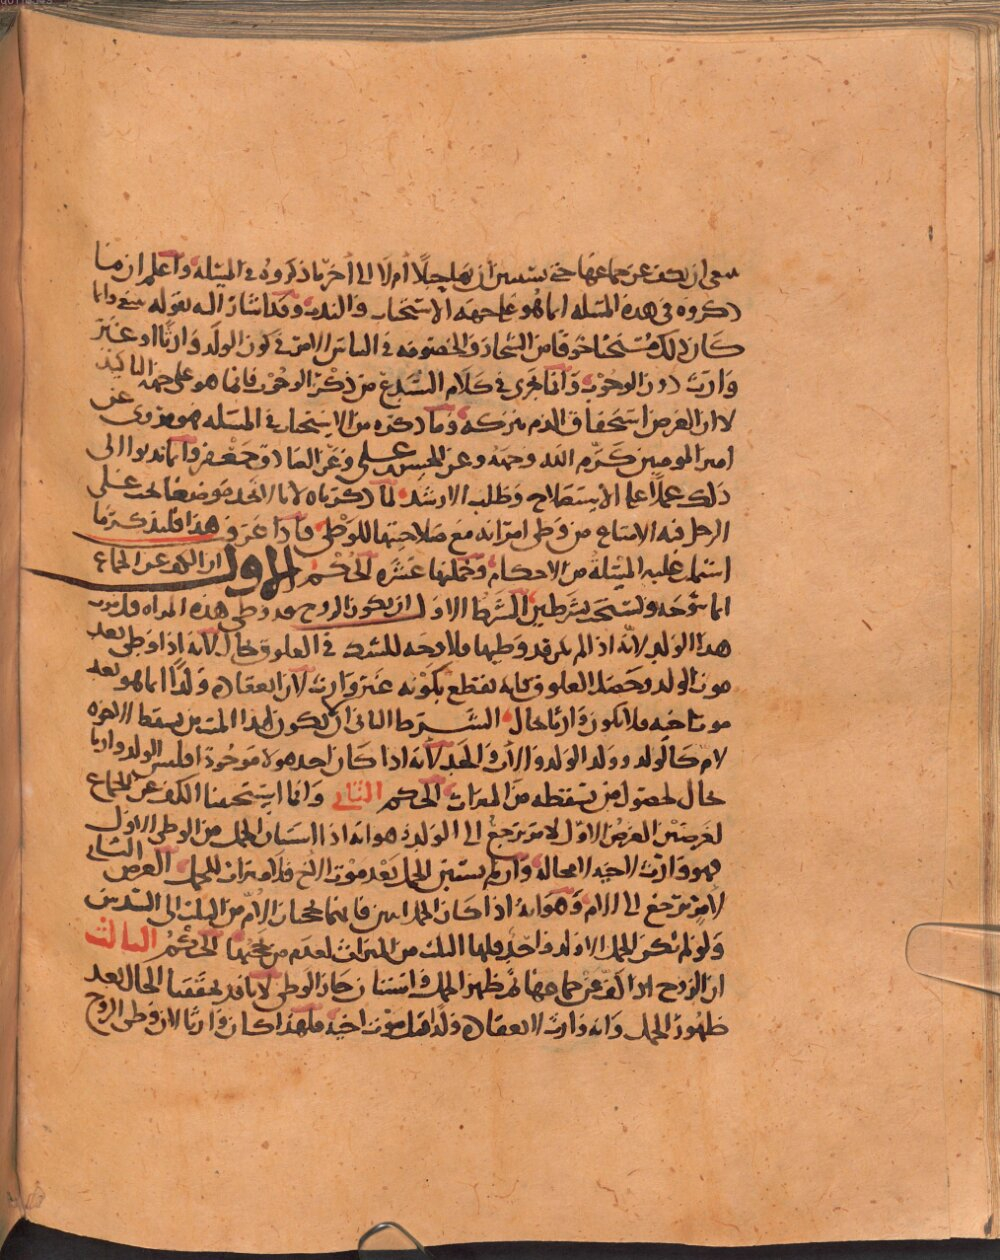 ينبغي ان يكف عن جماعها حتى يستبين ان بها حبلًا أم لا إلى أخر ما ذكروه في المسئله واعلم ان ما
ذكروه في هذه المسئله انما هو على جهه الاستحباب والندب وقد اشار اليه بقوله ينبغي وانما
كان ذلك مستحبا خوفا من الشجار والخصومه في التباس الامر في كون الولد وارثًا او غير
وارث دون الوجوب وانما يجري في كلام الشرع من ذكر الوجوب فانما هو على جهة التاكيد
لا ان الغرض استحقاق الذم بتركه وما ذكره من الاستحباب في المسئله هو مروي عن
امير المومنين كرم الله وجهه وعن الحسن بن علي وعن الصادق جعفر وانما ندبوا الى
ذلك عملًا على الاستصلاح وطلب الارشد لما ذكرناه لانا لا نجد موضعا يجب على
الرجل فيه الامتناع من وطى امراته مع صلاحيتها للوطى فاذا عرفت هذا فلنذكر ما
اشتملت عليه المسئلة من الاحكام وجملتها عشره الحكم الاول ان الكف عن الجماع
انما يتوجه ويستحب بشرطين الشرط الاول ان يكون الزوج قد وطى هذه المراه قبل موت
هذا الولد لانه اذا لم يكن قد وطيها فلا وجه للشك في العلوق بحال لانه اذا وطى بعد
موت الولد وحصل العلوق فانه يقطع بكونه غير وارث لان انعقاده ولدًا انما هو بعد
موت اخيه فلا يكون وارثا بحال الشرط الثاني ان لا يكون لهذا الميت من يسقط الاخوه
لام كالولد وولد الولد والاب والجد لانه اذا كان احد هولا موجودا فليس الولد وارثا
بحال لحصول من يسقطه من الميراث الحكم الثاني وانما استحببنا الكف عن الجماع
لغرضين الغرض الاول لامر يرجع الى الولد وهو انه اذا استبان الحمل من الوطى الاول
فهو وارث لاخيه لا محاله وان لم يستبن الحمل بعد موت الاخ فلا ميراث للحمل الغرض الثاني
لامر يرجع الى الام وهو انه اذا كان الحمل اثنين فانهما يحجبان الام من الثلث الى السدس
ولو لم يكن الحمل الا ولد واحد فلها الثلث من الميراث لعدم من يحجبها الحكم الثالث
ان الزوج اذا كف عن جماعها ثم ظهر الحمل واستبان جاز الوطى لانا قد تحققنا الحال بعد
ظهور الحمل وانه وارث لانعقاده ولدا قبل موت اخيه فلهذا كان وارثا لان وطى الزوج